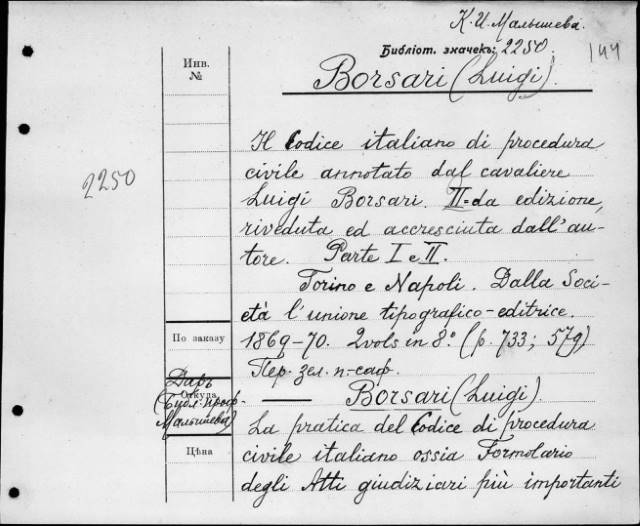 К. И. Малышева.
Библіот. значекъ: 2250.
144
Инв.
№
Borsari (Luigi).
2250
Il Codice italiano di procedura
civile annotato dal cavaliere
Luigi Borsari. II=da edizione,
riveduta ed accresciuta dall'au-
tore. Parte I e II.
Torino e Napoli. Dalla Socie-
età l'unione tipografico-editrice.
По заказу
1869-70. 2 vols in 8.° (p. 733; 579)
Пер. зел. п-саф.
Даръ
Откуда
(Библ. проф.
Малышева)
— Borsari (Luigi).
La pratica del Codice di procedura
Цѣна
civile italiano ossia Formolario
degli Atti giudiziari più importanti